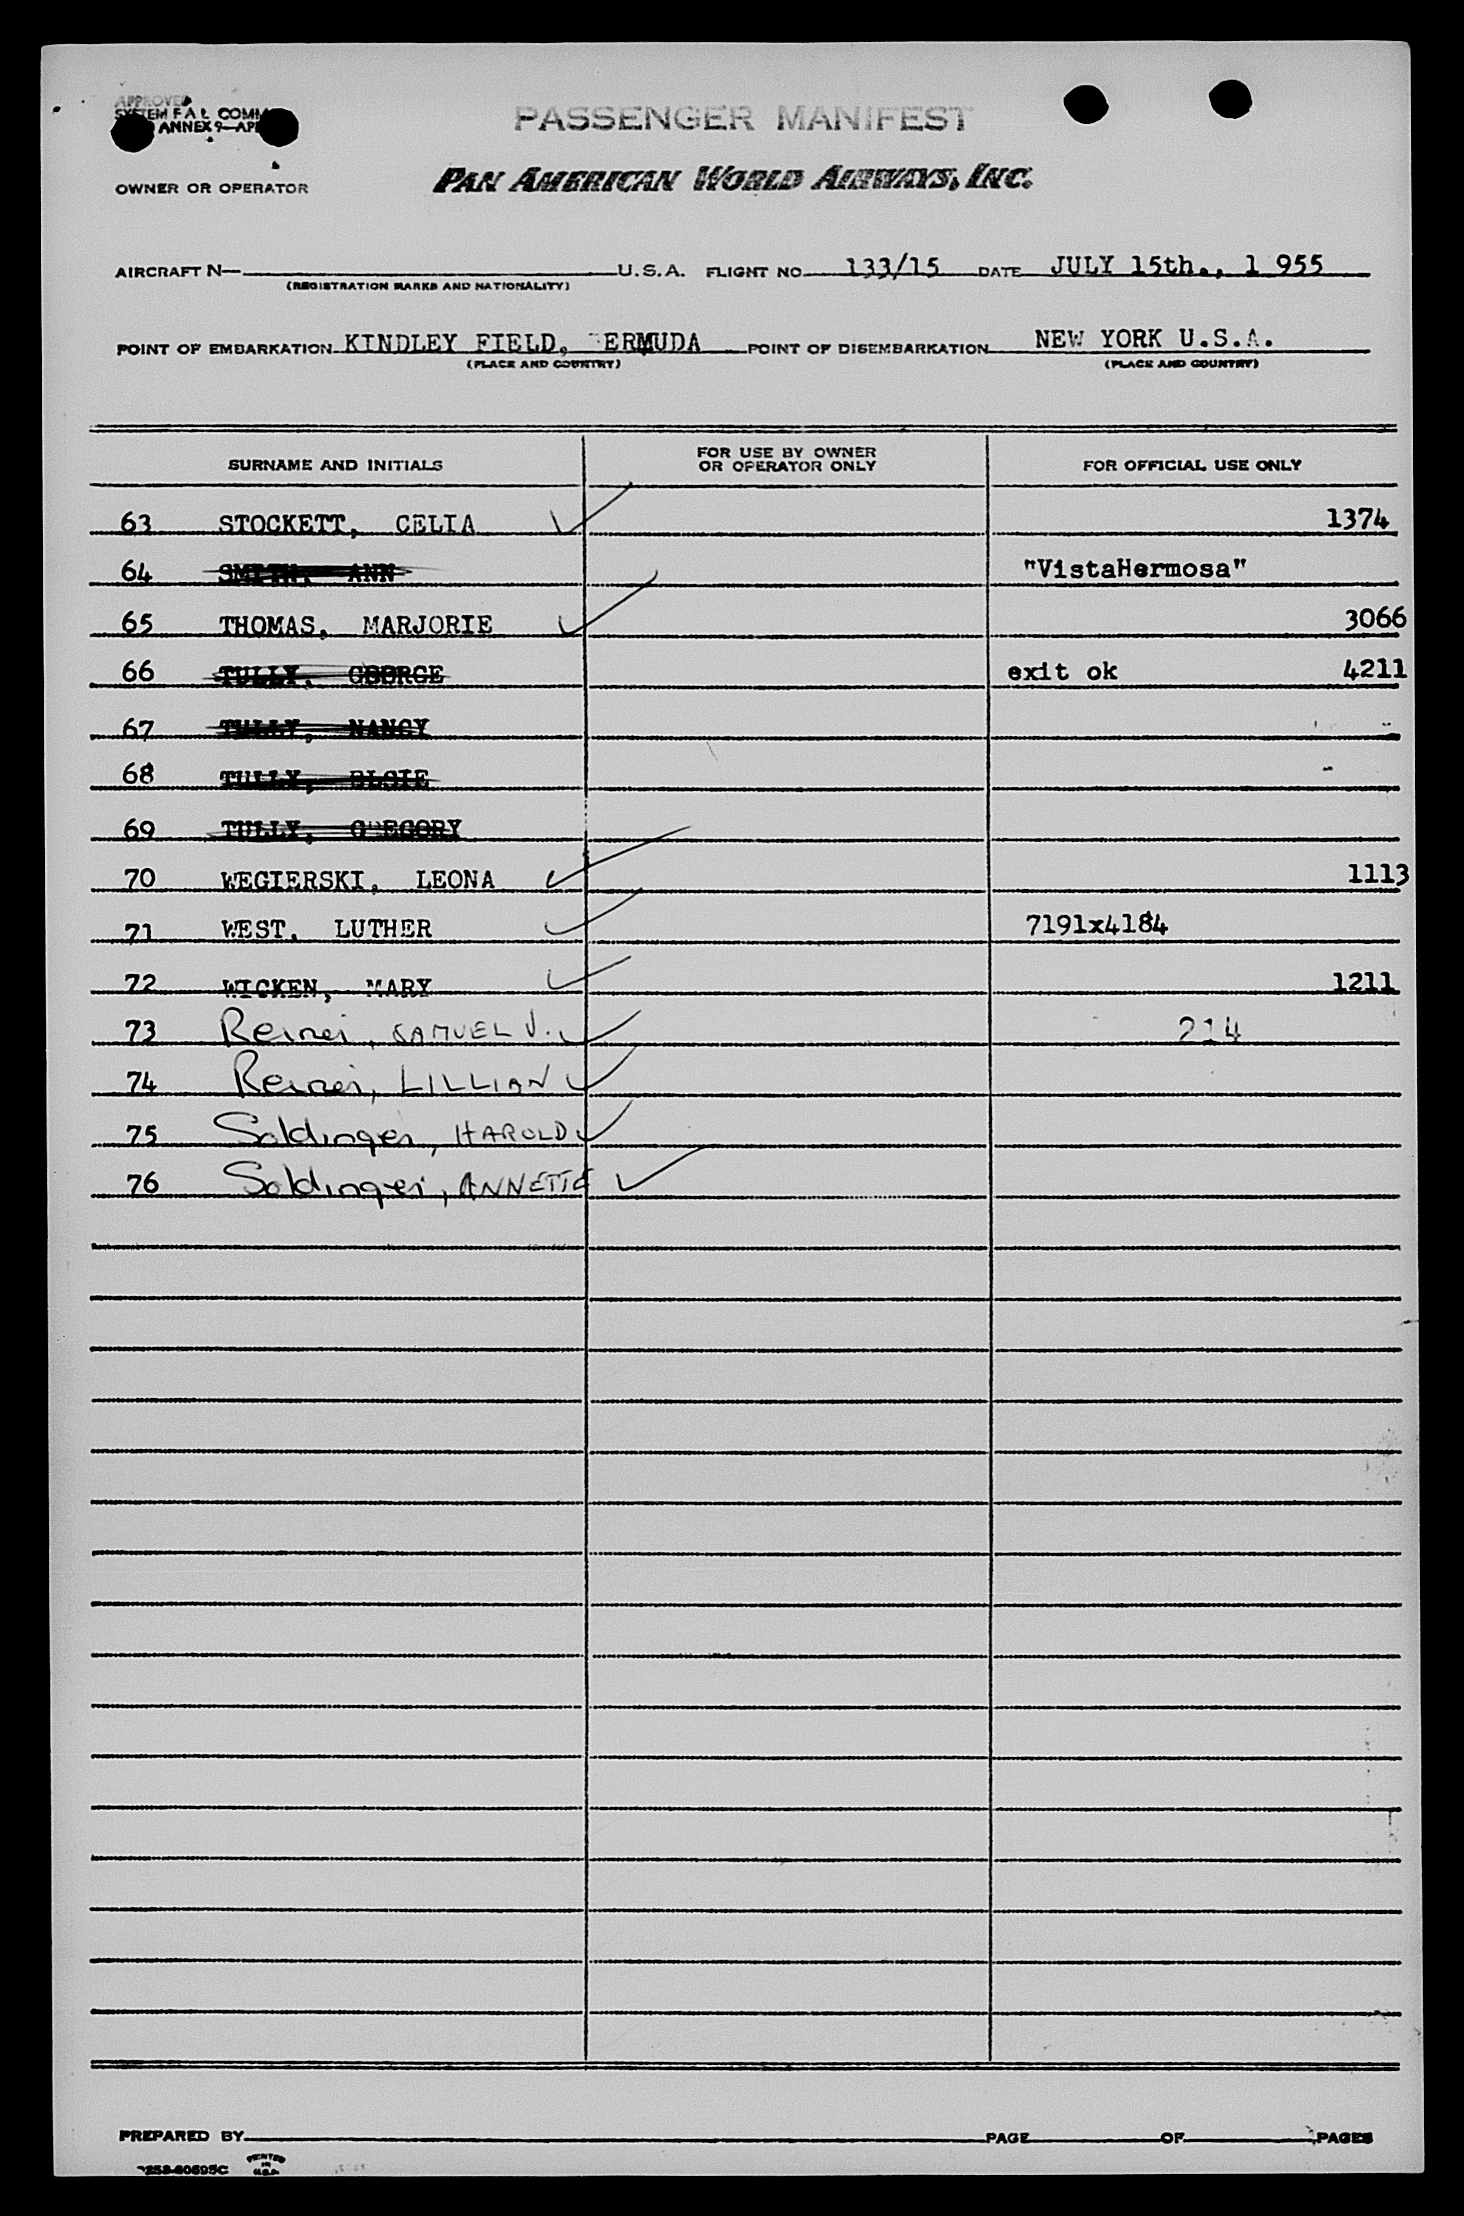 APPROVED
SYSTEM F A L COMM
ANNEX 9—AP
PASSENGER MANIFEST
OWNER OR OPERATOR PAN AMERICAN WORLD AIRWAYS, INC.
AIRCRAFT N— U.S.A. FLIGHT NO. 133/15 DATE JULY 15th., 1 955
(REGISTRATION MARKS AND NATIONALITY)
POINT OF EMBARKATION KINDLEY FIELD, ERMUDA POINT OF DISEMBARKATION NEW YORK U.S.A.
(PLACE AND COUNTRY) (PLACE AND COUNTRY)
SURNAME AND INITIALS FOR USE BY OWNER OR OPERATOR ONLY FOR OFFICIAL USE ONLY
63 STOCKETT, CELIA 1374
64 SMITH, ANN "VistaHermosa"
65 THOMAS, MARJORIE 3066
66 TULLY, GEORGE exit ok 4211
67 TULLY, NANCY
68 TULLY, ELSIE
69 TULLY, GREGORY
70 WEGIERSKI, LEONA 1113
71 WEST, LUTHER 7191x4184
72 WICKEN, MARY 1211
73 Reiner, SAMUEL J. 214
74 Reiner, LILLIAN
75 Soldinger, HAROLD
76 Soldinger, ANNETTE
PREPARED BY PAGE OF PAGES
PRINTED IN U.S.A.